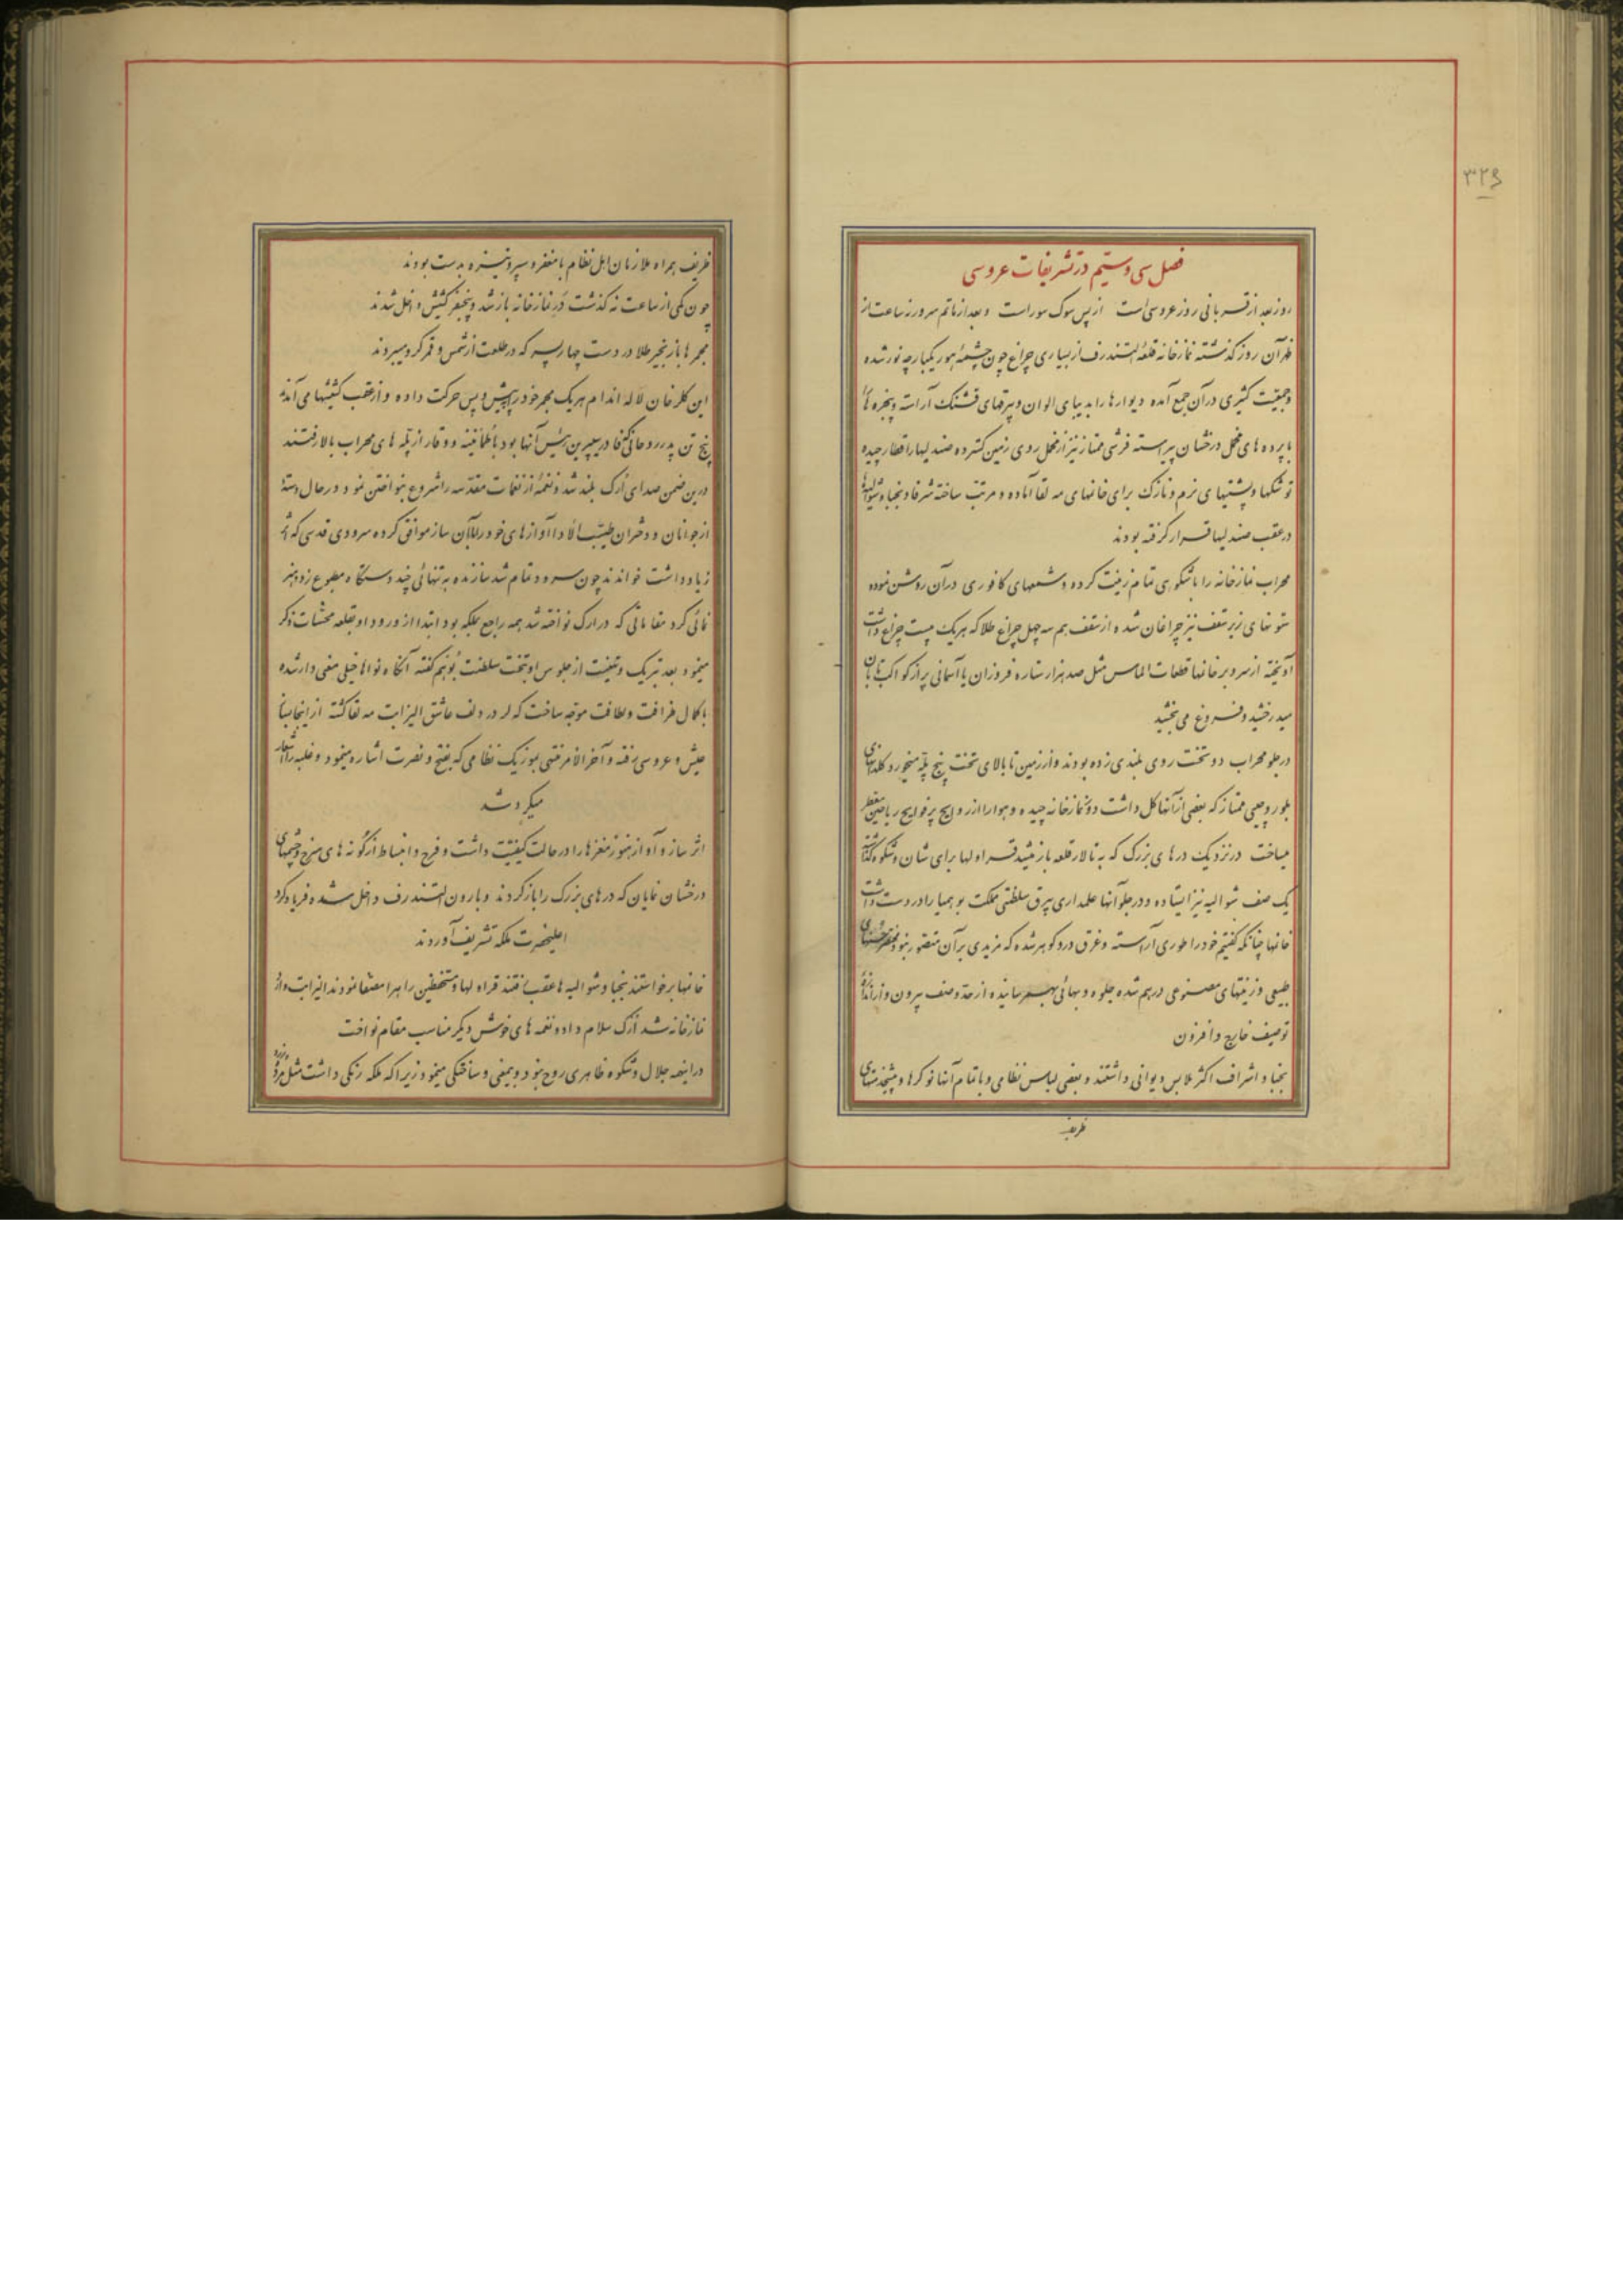 ۳۲۶
فصل سی و سیم در تشریفات عروسی
روز بعد از قربانی روز عروسی است از پس سوک سور است و بعد از ماتم سرور ساعت از
ظهر آن روز گذشته نمازخانه قلعهٔ التندرف از بسیاری چراغ چون چشمهٔ هور یکپارچه نور شده
و جمعیت کثیری در آن جمع آمده دیوارها را بدیبای الوان و بیرقهای قشنگ آراسته و پنجره ها
با پرده های مخمل درخشان پیراسته فرشی ممتاز نیز از مخمل روی زمین گسترده صندلیها را قطار چیده
توشکها و پشتیهای نرم و نازک برای خانمهای مه لقا آماده و مرتب ساخته شرفا و نجبا و شوالیه ها
در عقب صندلیها قرار گرفته بودند
محراب نمازخانه را با شکوهی تمام زینت کرده و شمعهای کافوری در آن روشن نموده
ستونهای زیر سقف نیز چراغان شده از سقف هم سه چهل چراغ طلا که هریک بیست چراغ داشت
آویخته از سر و بر خانمها قطعات الماس مثل صد هزار ستاره فروزان یا آسمانی پر از کواکب تابان
میدرخشید و فروغ می بخشید
در جلو محراب دو تخت روی بلندی زده بودند و از زمین تا بالای تخت پنج پله میخورد گلدانهای
بلور و چینی ممتاز که بعضی از آنها گل داشت دور نمازخانه چیده و هوا را از روایح پر فوایح ریاحین معطر
میساخت در نزدیک درهای بزرگ که به تالار قلعه باز میشد قراولها برای شان و شکوه گذاشته
یک صف شوالیه نیز ایستاده و در جلو آنها علمداری بیرق سلطنتی مملکت بوهمیا را در دست داشت
خانمها چنانکه گفتیم خود را طوری آراسته و غرق در و گوهر شده که مزیدی بر آن متصور نبود
طبیعی و زینتهای مصنوعی درهم شده جلوه و بهائی بهم رسانیده از حد وصف بیرون و از اندازهٔ
توصیف خارج و افزون
نجبا و اشراف اکثر ملابس دیوانی داشتند و بعضی لباس نظامی و با تمام آنها نوکرها و پیشخدمتهای
ظریف
ظریف همراه ملازمان اهل نظام با مغفر و سپر و نیزه بدست بودند
چون کمی از ساعت نه گذشت در نمازخانه باز شد و پنجنفر کشیش داخل شدند
مجمرها با زنجیر طلا در دست چهار پسر که در طلعت از شمس و قمر گرو میبردند
این گلرخان لاله اندام هریک مجمر خود را پیش و پس حرکت داده و از عقب کشیشها می آمدند
پنج تن پدر روحانی که در بیرین رئیس آنها بود با طمأنینه و وقار از پله های محراب بالا رفتند
درین ضمن صدای ارگ بلند شد و نغمهٔ از نغمات مقدسه را شروع بنواختن نمود و در حال دستهٔ
از جوانان و دختران طیب الاداء آوازهای خود را با آن ساز موافق کرده سرودی قدسی که اثر
زیاد داشت خواندند چون سرود تمام شد سازنده به تنهائی چند دستگاه مطبوع زد و هنر
نمائی کرد مقاماتی که در ارگ نواخته شد همه راجع بملکه بود ابتدا از ورود او بقلعه محتشات ذکر
مینمود بعد تبریک و تهنیت از جلوس او بتخت سلطنت بوهم گفته آنگاه نواها خیلی معنی دار شده
با کمال ظرافت و لطافت متوجه ساخت که لرد ردلف عاشق الیزابت مه لقا گشته از اینجا بساز
عیش و عروسی رفته و آخر الامر منتهی بموزیک نظامی که بفتح و نصرت اشاره مینمود و غلبه را آشکار
میکرد شد
اثر ساز و آواز هنوز مغزها را در حالت کیفیت داشت و فرح و انبساط از گونه های سرخ و چشمهای
درخشان نمایان که درهای بزرگ را باز کردند و بارون التندرف داخل شده فریاد کرد
اعلیحضرت ملکه تشریف آوردند
خانمها برخواستند نجبا و شوالیه ها عقب رفتند قراولها و مستحفظین راهرا مصفا نمودند الیزابت وارد
نمازخانه شد ارگ سلام داد و نغمه های خوش دیگر مناسب مقام نواخت
در اینهمه جلال و شکوه ظاهری روح نبود و بیمعنی و ساختگی مینمود زیرا که ملکه رنگی داشت مثل مرده